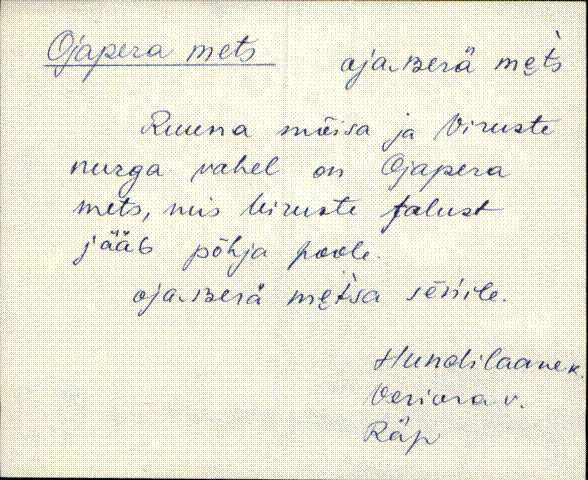 Ojapera mets ojaʙerä mẹt̀s
Ruuna mõisa ja Viruste
nurga vahel on Ojapera
mets, mis Viruste talust
jääb põhja poole.
ojaʙerä mẹt̀sa
Hundilaane k.
Veriora v.
Räp